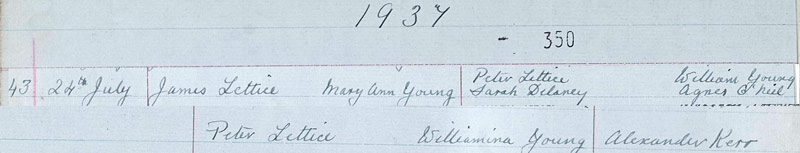 1937
- 350
43 24th July James Lettice Mary Ann Young Peter Lettice William Young
Sarah Delaney Agnes O'Neil
Peter Lettice Williamina Young Alexander Kerr